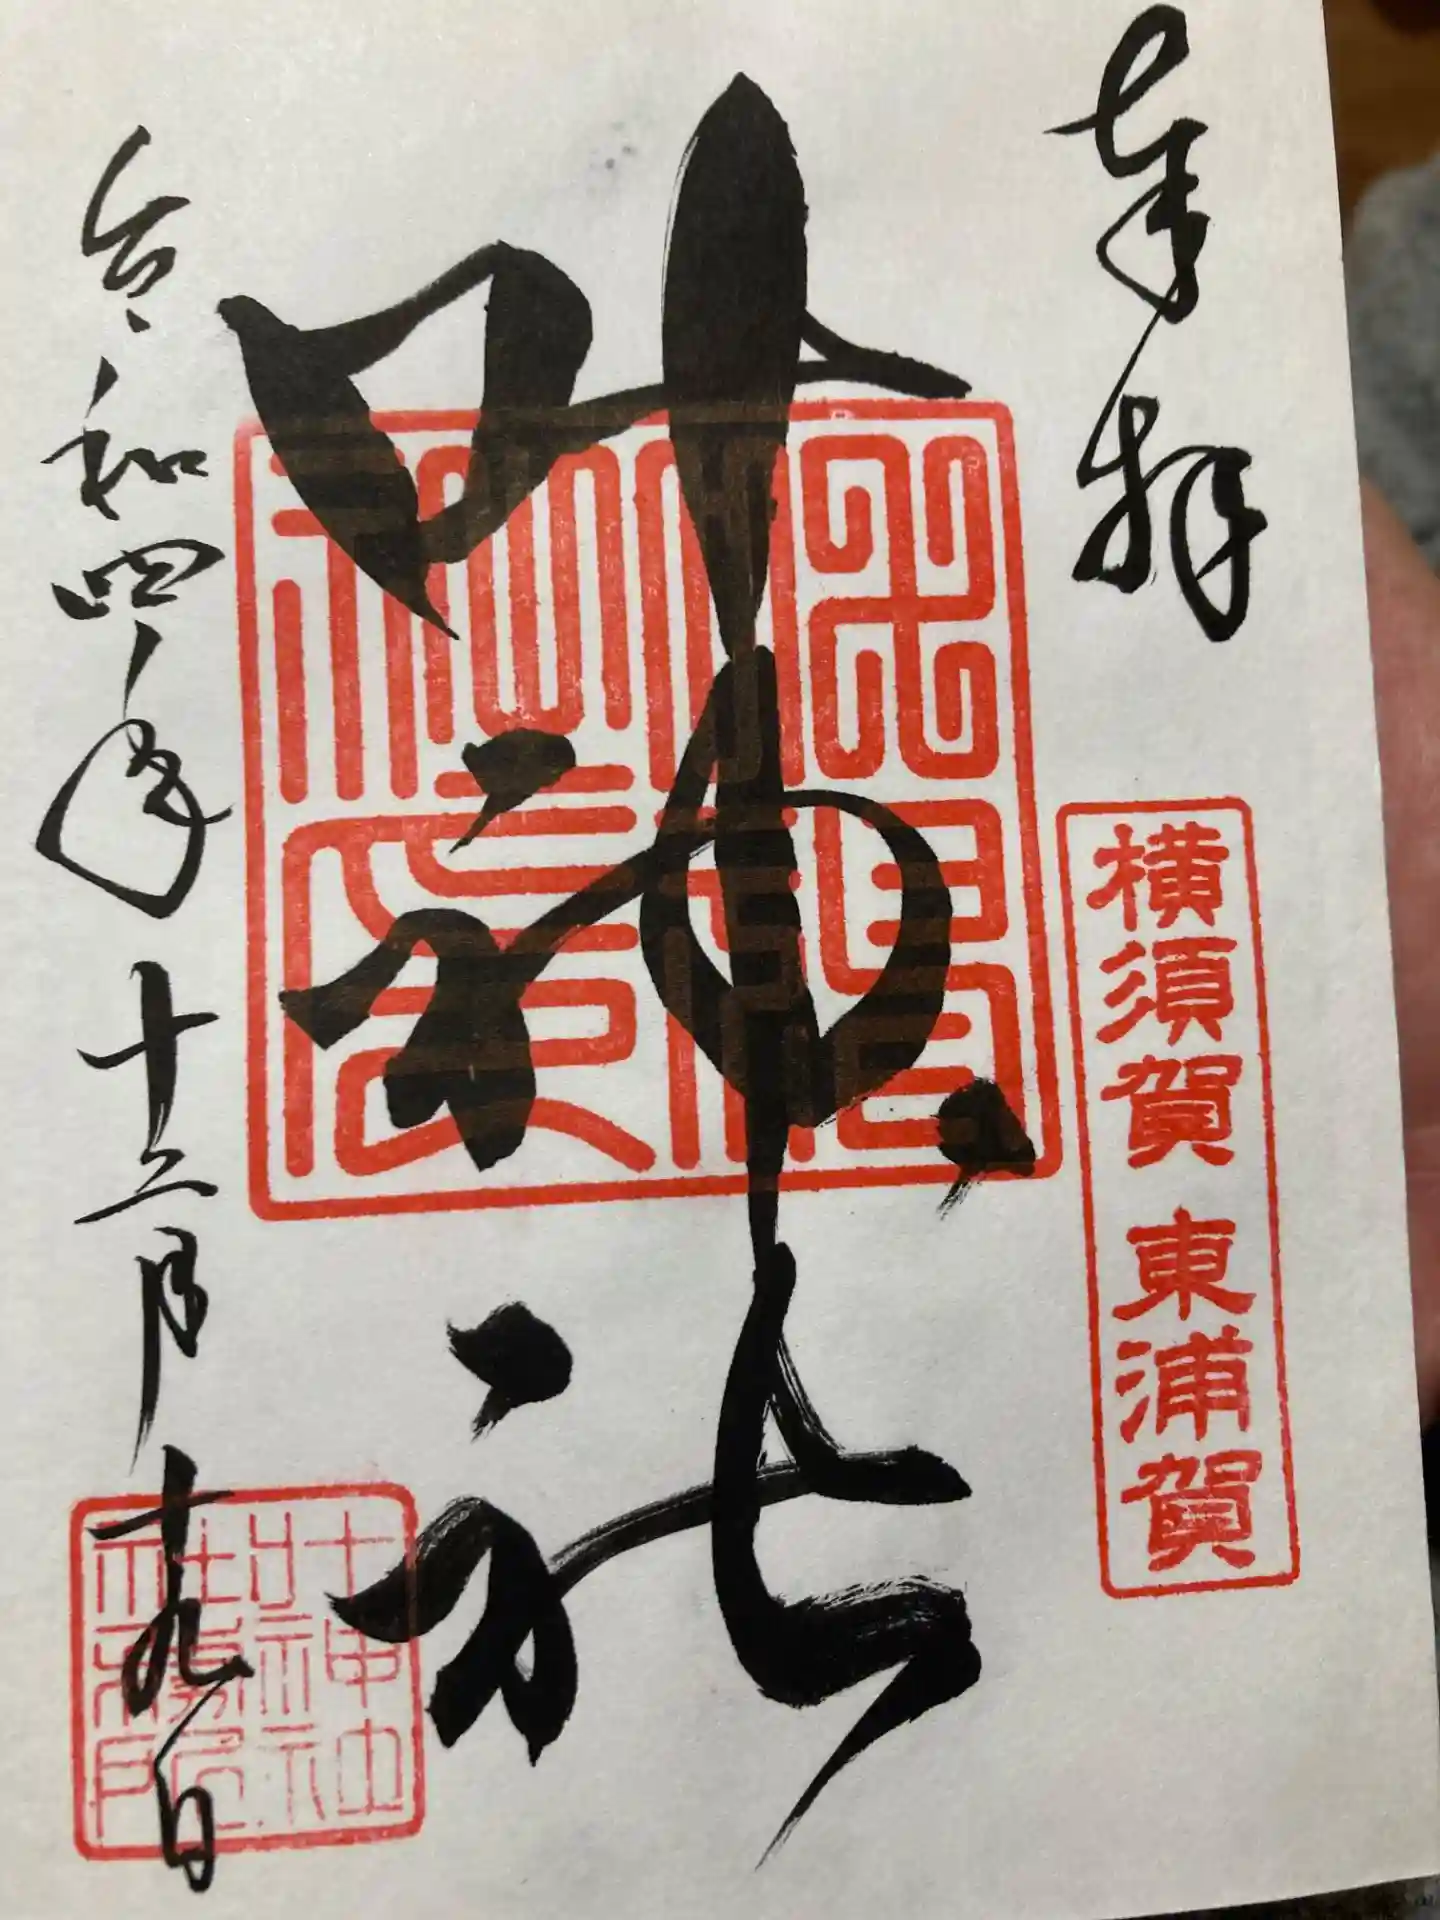 奉拝
横須賀 東浦賀
叶神社
令和四年十二月十九日
叶神社社務所